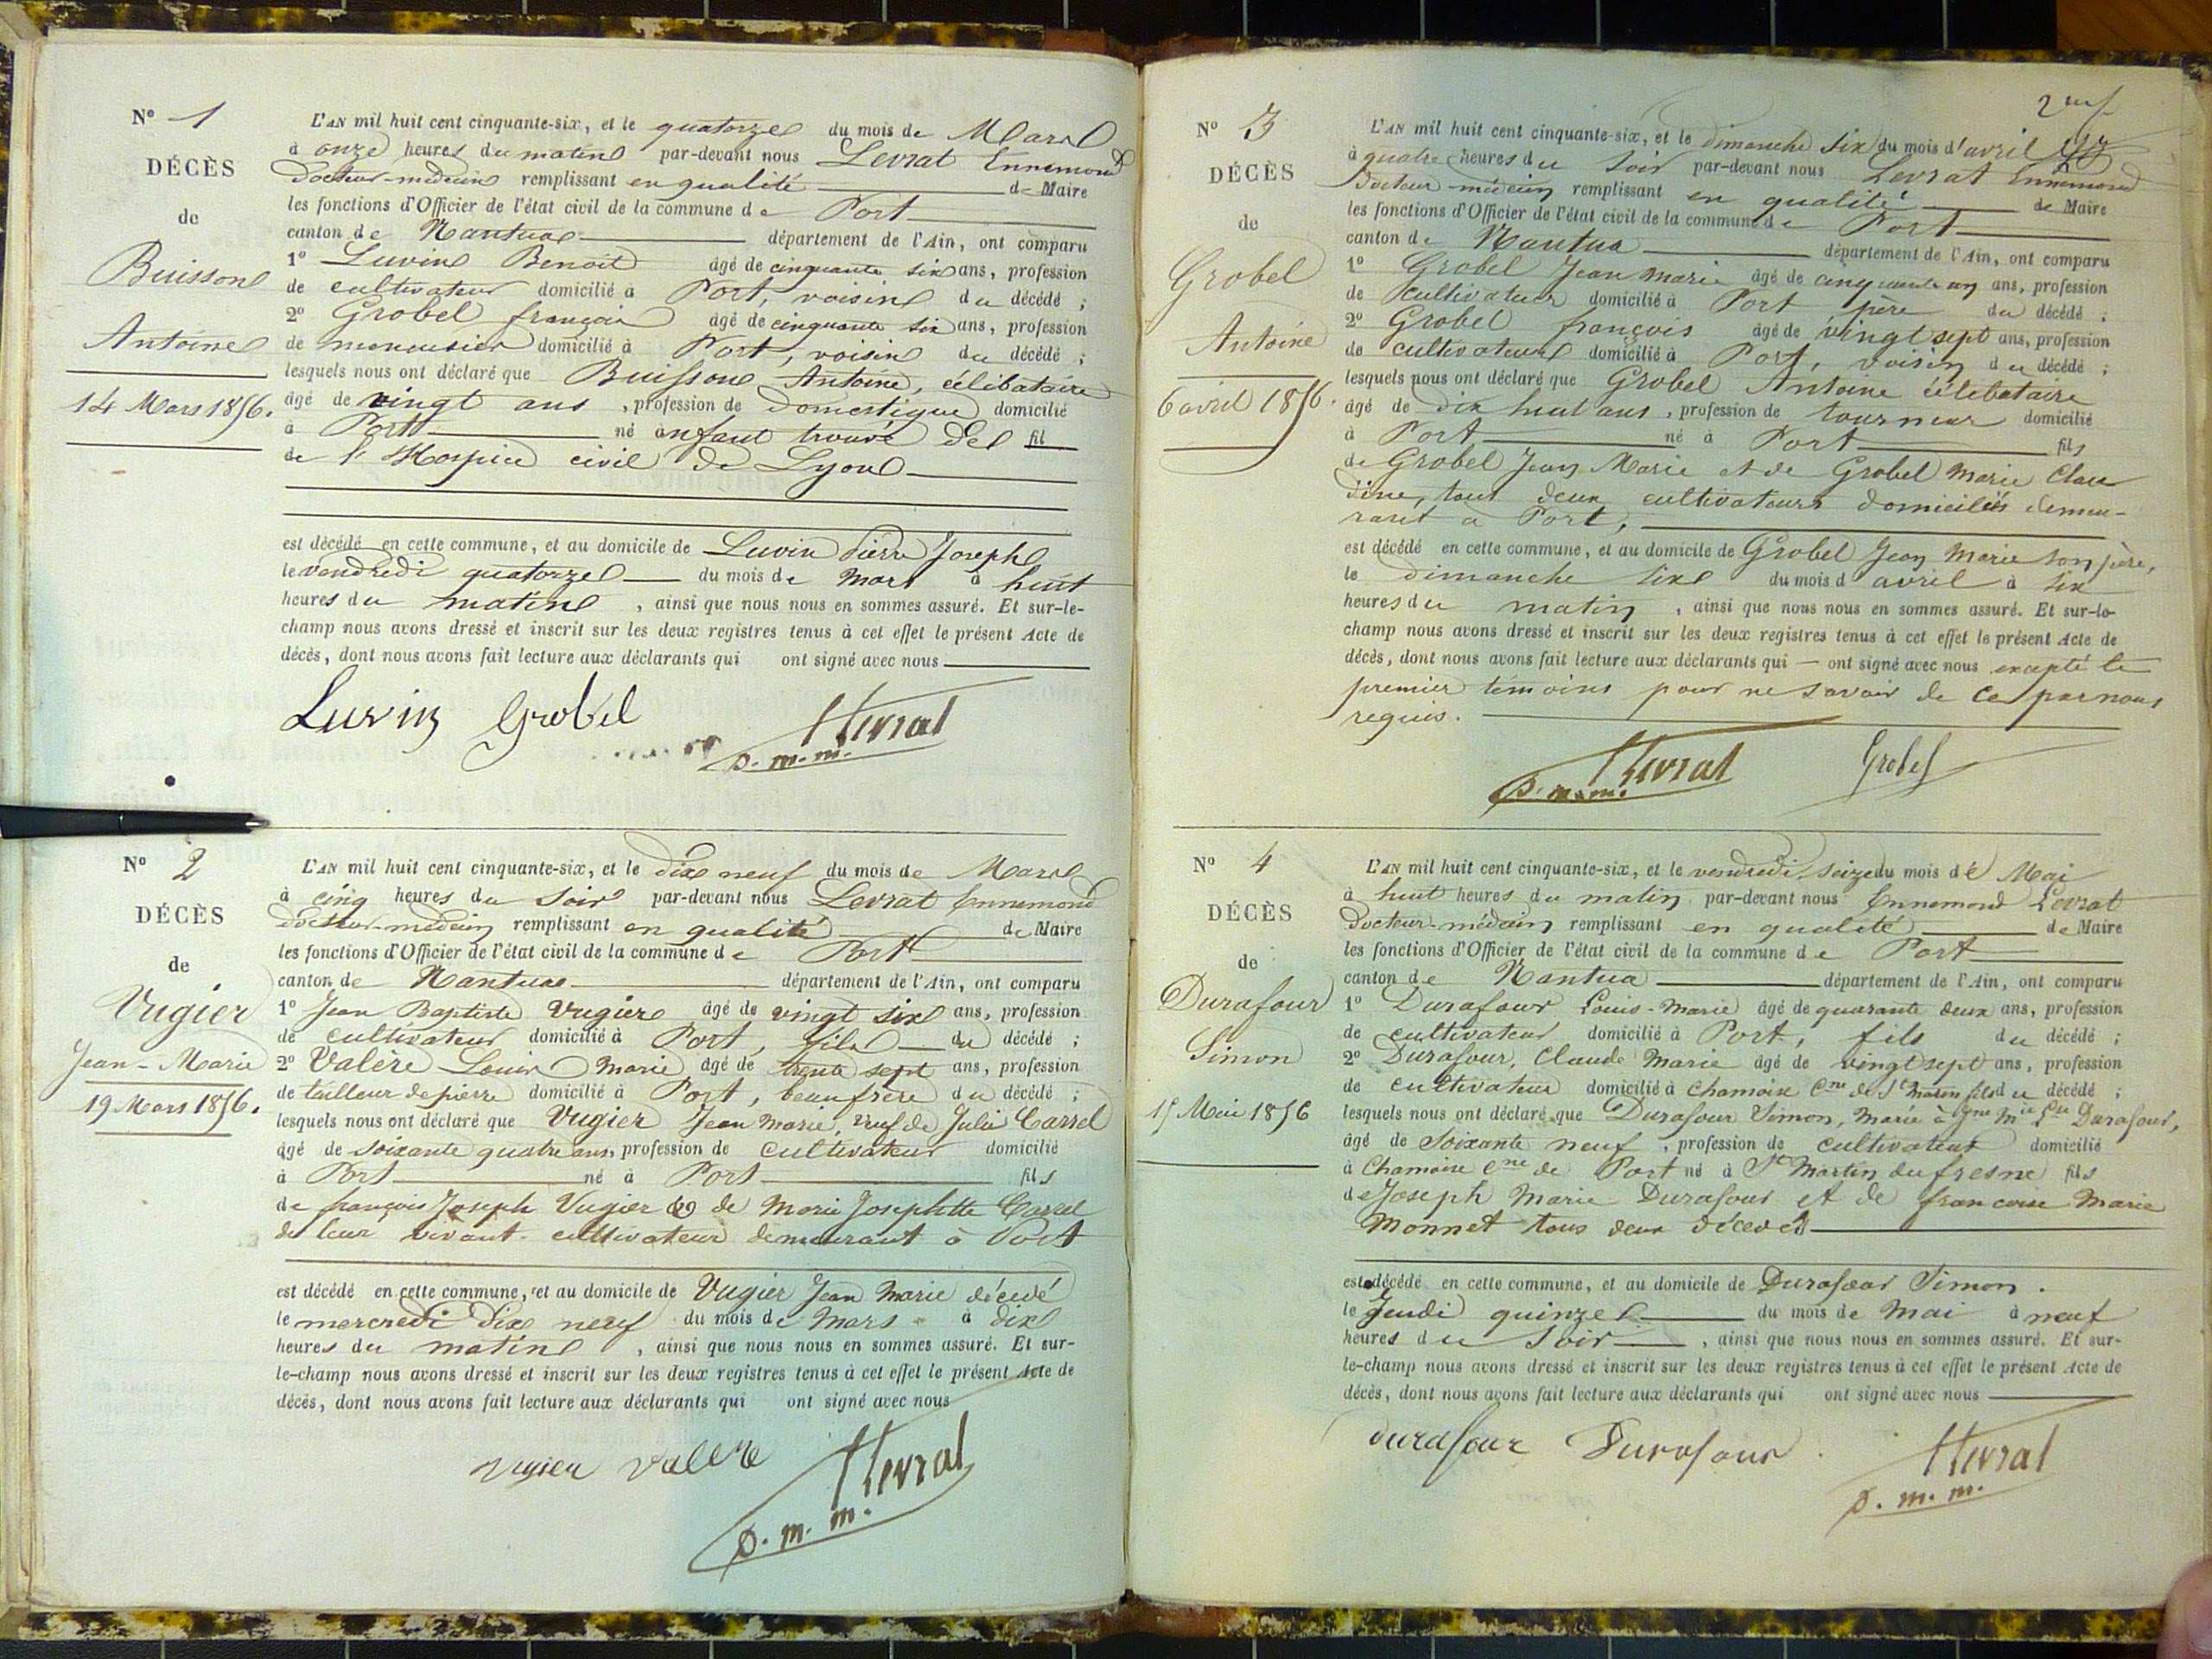 N° 1
DÉCÈS
de
Buisson
Antoine
14 Mars 1856.
L'AN mil huit cent cinquante-six, et le quatorze du mois de Mars
à onze heures du matin par-devant nous Levrat Ennemond
Docteur-médecin remplissant en qualité de Maire
les fonctions d'Officier de l'état civil de la commune de Port
canton de Nantua département de l'Ain, ont comparu
1° Luvin Benoit âgé de cinquante six ans, profession
de cultivateur domicilié à Port, voisin du décédé ;
2° Grobel françois âgé de cinquante six ans, profession
de menuisier domicilié à Port, voisin du décédé ;
lesquels nous ont déclaré que Buisson Antoine, célibataire
âgé de vingt ans, profession de Domestique domicilié
à Port né enfant trouvé de fil
de l'Hospice civil de Lyon
est décédé en cette commune, et au domicile de Luvin Pierre Joseph
le vendredi quatorze du mois de Mars à huit
heures du matin, ainsi que nous nous en sommes assuré. Et sur-le-
champ nous avons dressé et inscrit sur les deux registres tenus à cet effet le présent Acte de
décès, dont nous avons fait lecture aux déclarants qui ont signé avec nous
Luvin Grobel Levrat
D. m. m.
N° 2
DÉCÈS
de
Vugier
Jean-Marie
19 Mars 1856.
L'AN mil huit cent cinquante-six, et le dix neuf du mois de Mars
à cinq heures du Soir par-devant nous Levrat Ennemond
Docteur-médecin remplissant en qualité de Maire
les fonctions d'Officier de l'état civil de la commune de Port
canton de Nantua département de l'Ain, ont comparu
1° Jean Baptiste Vugier âgé de vingt six ans, profession
de cultivateur domicilié à Port, fils du décédé ;
2° Valère Louis Marie âgé de trente sept ans, profession
de tailleur de pierre domicilié à Port, beau frère du décédé ;
lesquels nous ont déclaré que Vugier Jean Marie, veuf de Julie Carrel
âgé de soixante quatre ans, profession de cultivateur domicilié
à Port né à Port fils
de françois Joseph Vugier & de Marie Josephtte Carrel
de leur vivant cultivateur demeurant à Port
est décédé en cette commune, et au domicile de Vugier Jean Marie décédé
le mercredi dix neuf du mois de Mars à dix
heures du matin, ainsi que nous nous en sommes assuré. Et sur-
le-champ nous avons dressé et inscrit sur les deux registres tenus à cet effet le présent Acte de
décès, dont nous avons fait lecture aux déclarants qui ont signé avec nous
vugier valere Levrat
D. m. m.
N° 3
DÉCÈS
de
Grobel
Antoine
6 avril 1856.
L'AN mil huit cent cinquante-six, et le dimanche six du mois d'avril
à quatre heures du Soir par-devant nous Levrat Ennemond
Docteur-médecin remplissant en qualité de Maire
les fonctions d'Officier de l'état civil de la commune de Port
canton de Nantua département de l'Ain, ont comparu
1° Grobel Jean Marie âgé de cinquante un ans, profession
de cultivateur domicilié à Port père du décédé ;
2° Grobel françois âgé de vingt sept ans, profession
de cultivateur domicilié à Port, voisin du décédé ;
lesquels nous ont déclaré que Grobel Antoine célibataire
âgé de dix huit ans, profession de tourneur domicilié
à Port né à Port fils
de Grobel Jean Marie et de Grobel Marie Clau
dine, tous deux cultivateurs domiciliés demeu-
rant à Port,
est décédé en cette commune, et au domicile de Grobel Jean Marie son père,
le dimanche six du mois d'avril à six
heures du matin, ainsi que nous nous en sommes assuré. Et sur-le-
champ nous avons dressé et inscrit sur les deux registres tenus à cet effet le présent Acte de
décès, dont nous avons fait lecture aux déclarants qui — ont signé avec nous excepté le
premier témoins pour ne savoir de ce par nous
requis.
Levrat Grobel
D. m. m.
N° 4
DÉCÈS
de
Durafour
Simon
15 Mai 1856
L'AN mil huit cent cinquante-six, et le vendredi, seize du mois de Mai
à huit heures du matin par-devant nous Ennemond Levrat
Docteur-médecin remplissant en qualité de Maire
les fonctions d'Officier de l'état civil de la commune de Port
canton de Nantua département de l'Ain, ont comparu
1° Durafour Louis-Marie âgé de quarante deux ans, profession
de cultivateur domicilié à Port, fils du décédé ;
2° Durafour, Claude Marie âgé de vingt sept ans, profession
de cultivateur domicilié à Chamoise Cne de St Martin fils du décédé ;
lesquels nous ont déclaré que Durafour Simon, Marié à Durafour,
âgé de Soixante neuf, profession de cultivateur domicilié
à Chamoise Cne de Port né à St Martin du fresne fils
de Joseph Marie Durafour et de francoise Marie
Monnet tous deux décédés
est décédé en cette commune, et au domicile de Durafour Simon.
le Jeudi quinze du mois de Mai à neuf
heures du Soir, ainsi que nous nous en sommes assuré. Et sur-
le-champ nous avons dressé et inscrit sur les deux registres tenus à cet effet le présent Acte de
décès, dont nous avons fait lecture aux déclarants qui ont signé avec nous
durafour Durafour Levrat
D. m. m.